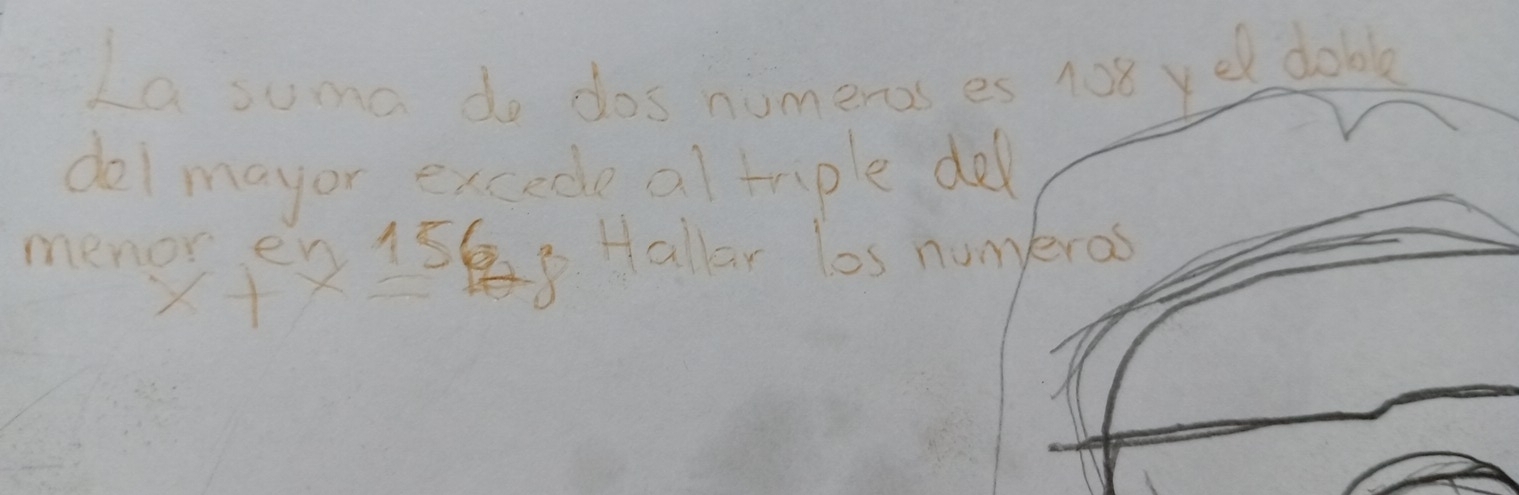 La suma de dos numeros es 108 y el doble
del mayor excede al triple del
menor en 156 Hallar los numeros
x + x =